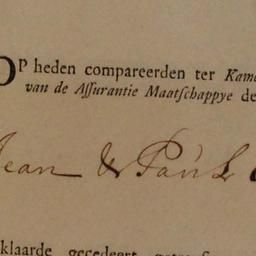 OP heden compareerden ter Kame
van de Aſſurantie Maatſchappye de
Jean & Paul
klaarde gecedeert